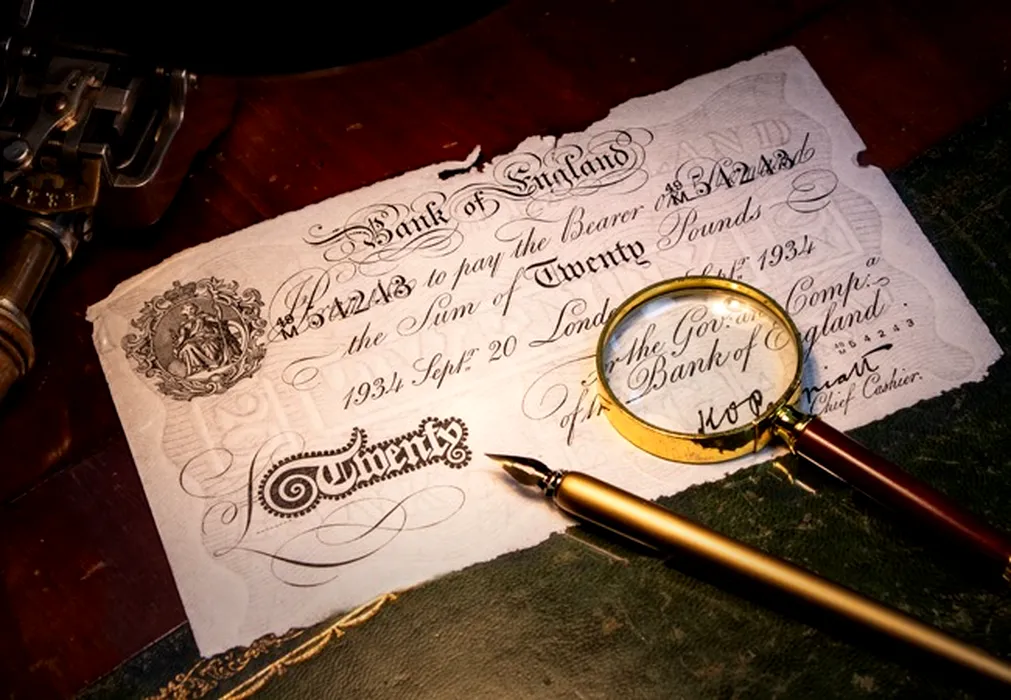 Bank of England
49 M 54243
Promise to pay the Bearer on Demand
49 M 54243
the Sum of Twenty Pounds
1934 Septr. 20 London 20 Septr. 1934
For the Gov: and Comp:a
of the Bank of England.
49 M 54243
K O Peppiatt
Chief Cashier.
Twenty